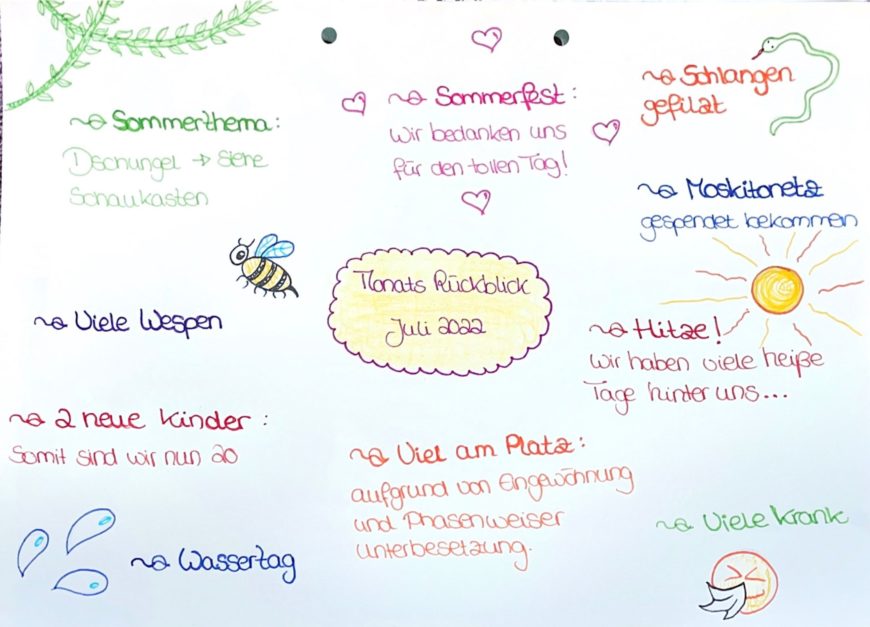 Sommerthema:
Dschungel → Siehe
Schaukasten
Sommerfest:
Wir bedanken uns
für den tollen Tag!
Schlangen
gefilzt
Moskitonetz
gespendet bekommen
Monats Rückblick
Juli 2022
Viele Wespen
Hitze!
Wir haben viele heiße
Tage hinter uns...
2 neue Kinder:
Somit sind wir nun 20
Viel am Platz:
aufgrund von Eingewöhnung
und Phasenweiser
Unterbesetzung.
Wassertag
Viele Krank